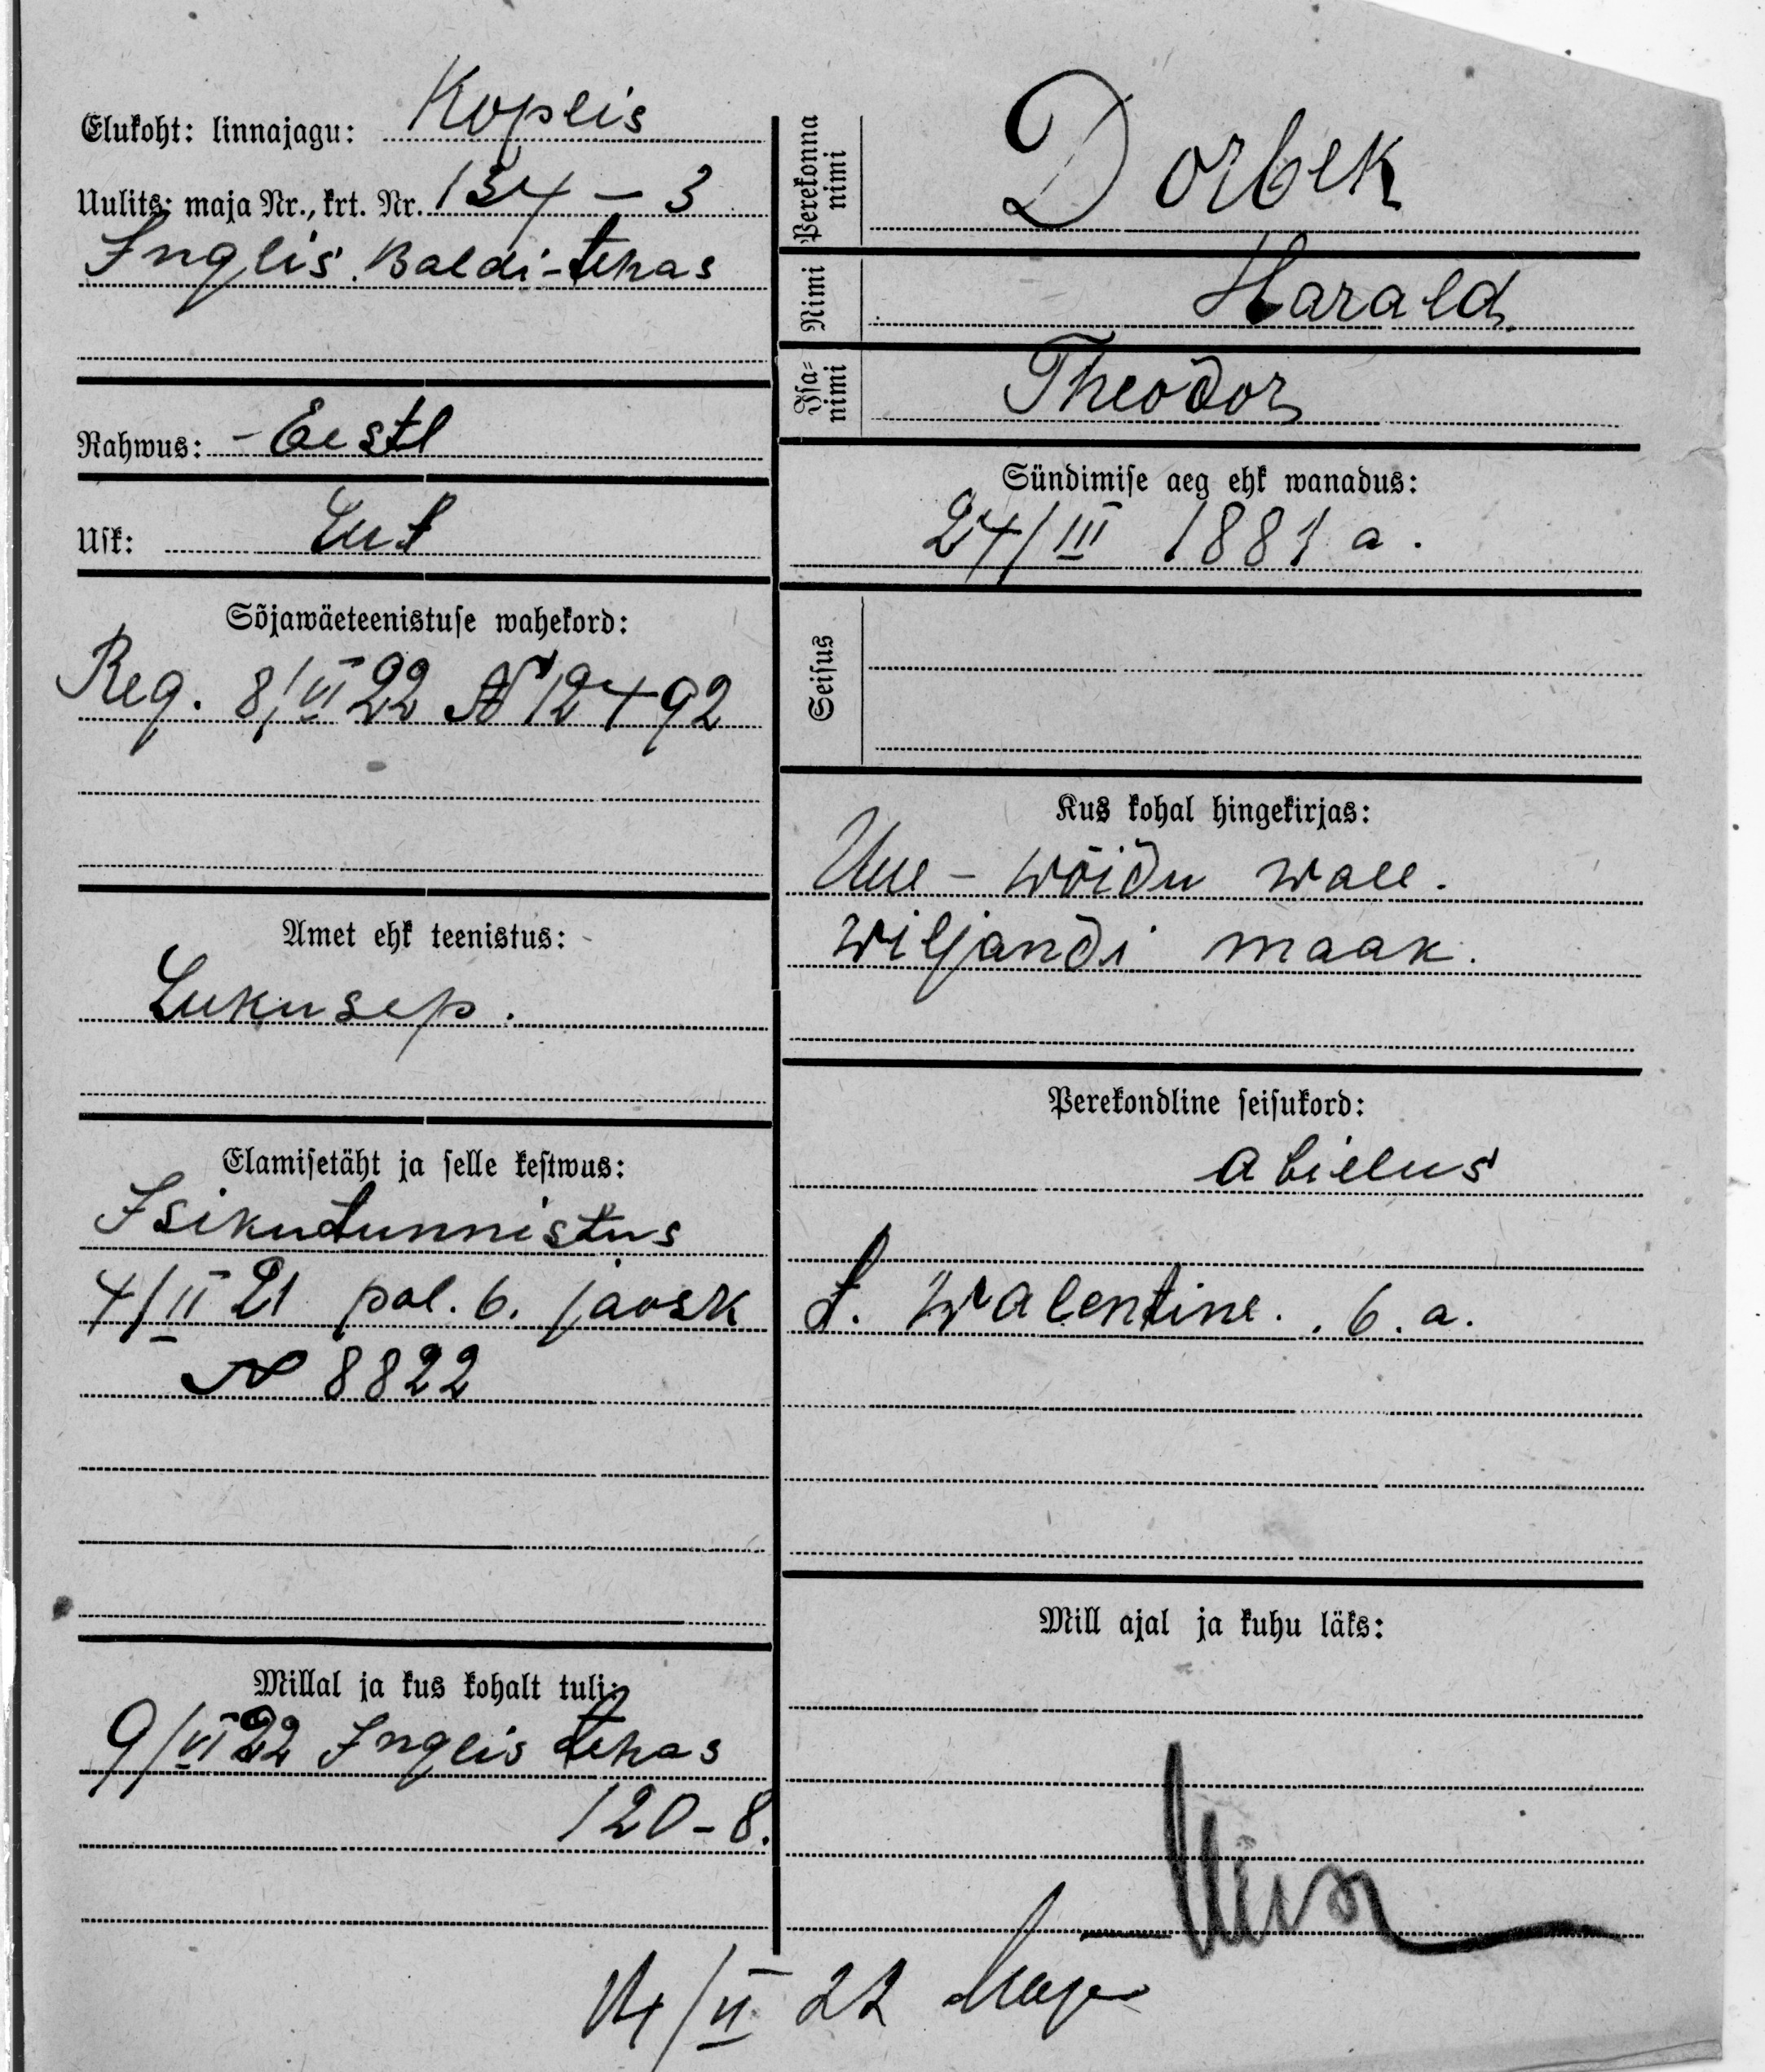 Elukoht: linnajagu: Koplis
Uulits: maja Nr., krt. Nr. 134 – 3
Inglis. Baldi-tehas
Rahwus: - Eestl
Usk: Lut
Sõjawäeteenistuse wahekord:
Reg. 8/VI 22 № 12492
Amet ehk teenistus:
Lukusep.
Elamisetäht ja selle kestwus:
Isikutunnistus
4/II 21 pol. 6. jaosk
№ 8822
Millal ja kus kohalt tuli:
9/VI 22 Inglis tehas
120-8.
Perekonna nimi Dorbek
Nimi Harald
Isa-nimi Theodor
Sündimise aeg ehk wanadus:
24/III 1881 a.
Seisus
Kus kohal hingekirjas:
Uue - wõidu wall.
Wiljandi maak.
Perekondline seisukord:
abielus
t. Walentine. . 6. a.
Mill ajal ja kuhu läks:
22